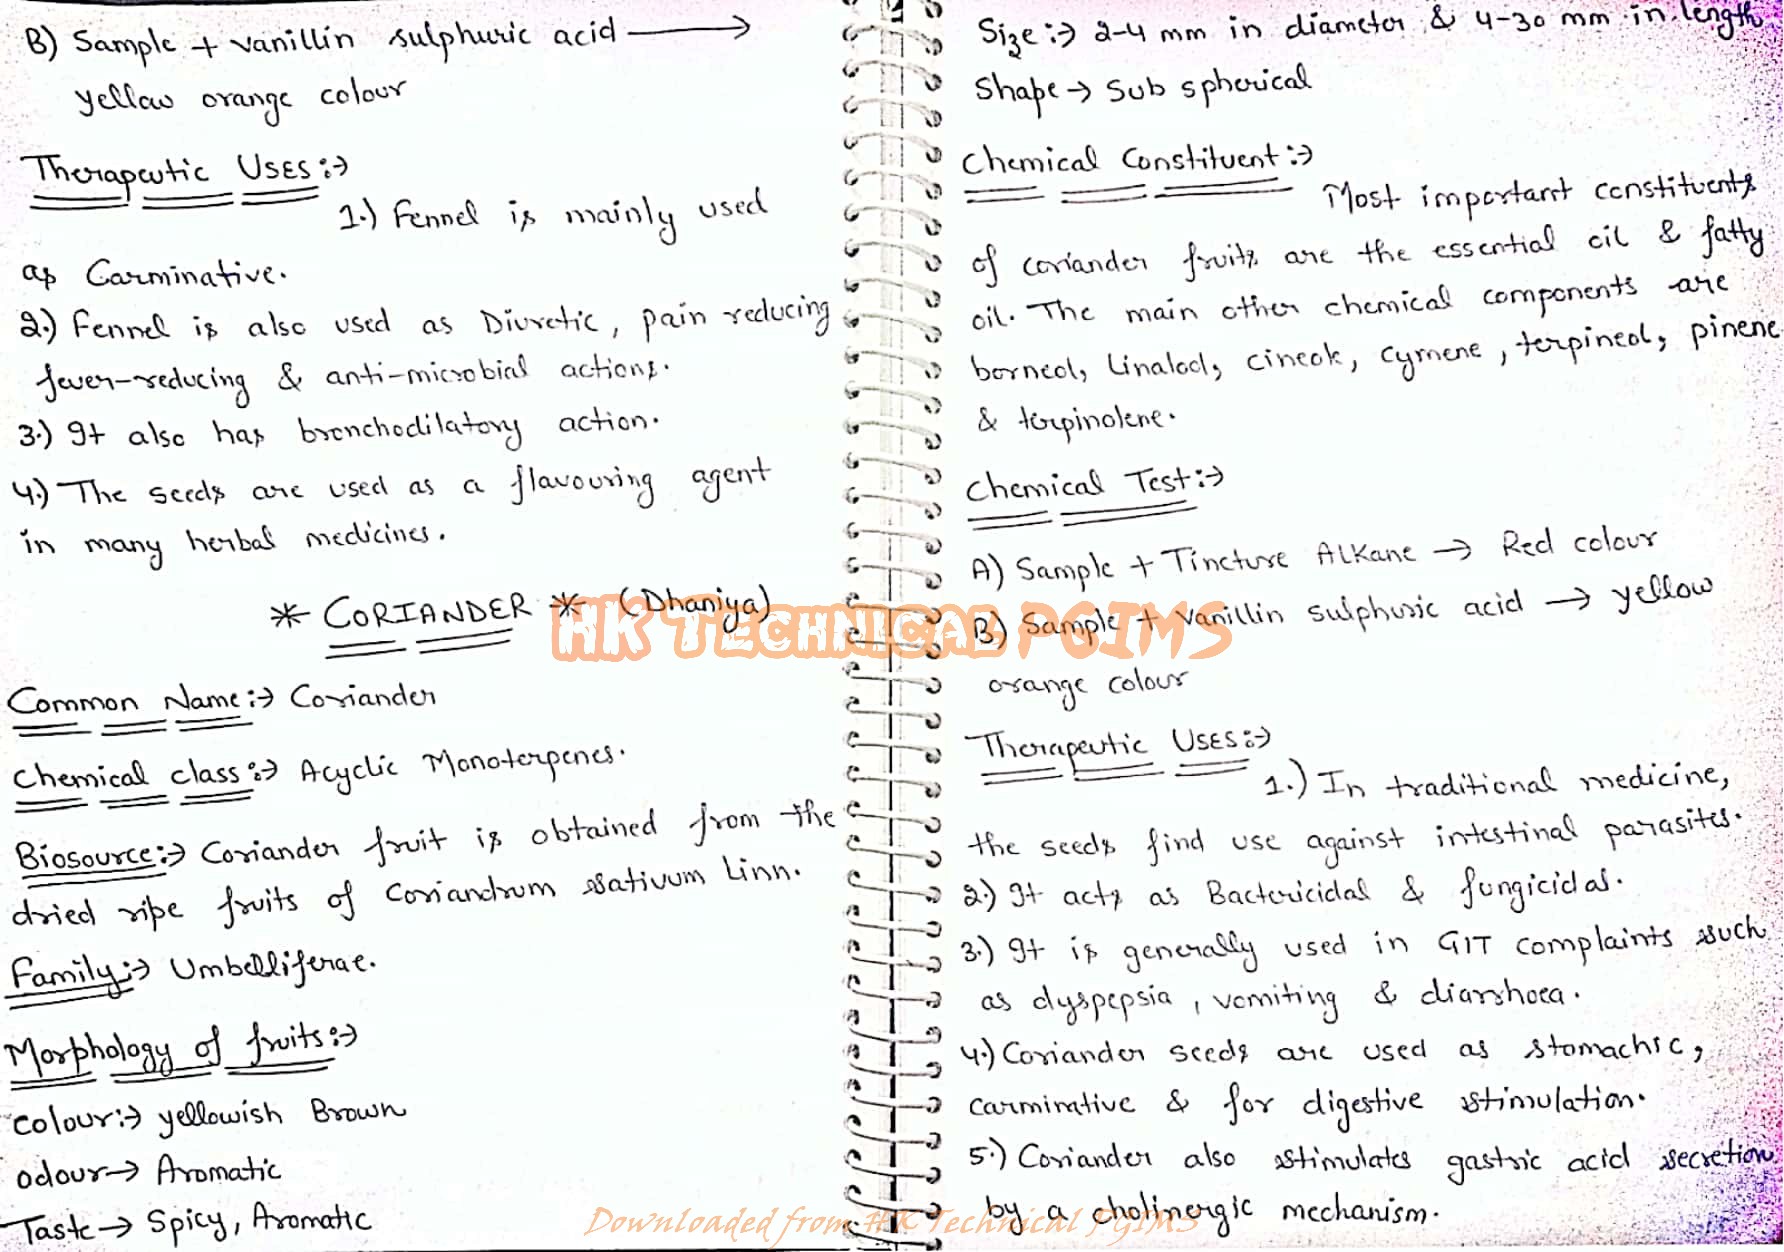 B) Sample + vanillin sulphuric acid →
yellow orange colour
Therapeutic Uses:→
1.) Fennel is mainly used
as Carminative.
2.) Fennel is also used as Diuretic, pain reducing
fever-reducing & anti-microbial actions.
3.) It also has bronchodilatory action.
4.) The seeds are used as a flavouring agent
in many herbal medicines.
* CORIANDER * (Dhaniya)
Common Name:→ Coriander
Chemical class:→ Acyclic Monoterpenes.
Biosource:→ Coriander fruit is obtained from the
dried ripe fruits of Coriandrum sativum Linn.
Family:→ Umbelliferae.
Morphology of fruits:→
Colour:→ yellowish Brown
odour→ Aromatic
Taste→ Spicy, Aromatic
Size:→ 2-4 mm in diameter & 4-30 mm in length
Shape→ Sub spherical
Chemical Constituent:→
Most important constituents
of coriander fruits are the essential oil & fatty
oil. The main other chemical components are
borneol, linalool, cineole, cymene, terpineol, pinene
& terpinolene.
Chemical Test:→
A) Sample + Tincture Alkane → Red colour
B) Sample + vanillin sulphuric acid → yellow
orange colour
Therapeutic Uses:→
1.) In traditional medicine,
the seeds find use against intestinal parasites.
2.) It acts as Bactericidal & fungicidal.
3.) It is generally used in GIT complaints such
as dyspepsia, vomiting & diarrhoea.
4.) Coriander seeds are used as stomachic,
carminative & for digestive stimulation.
5.) Coriander also stimulates gastric acid secretion
by a cholinergic mechanism.
HK Technical PGIMS
Downloaded from HK Technical PGIMS